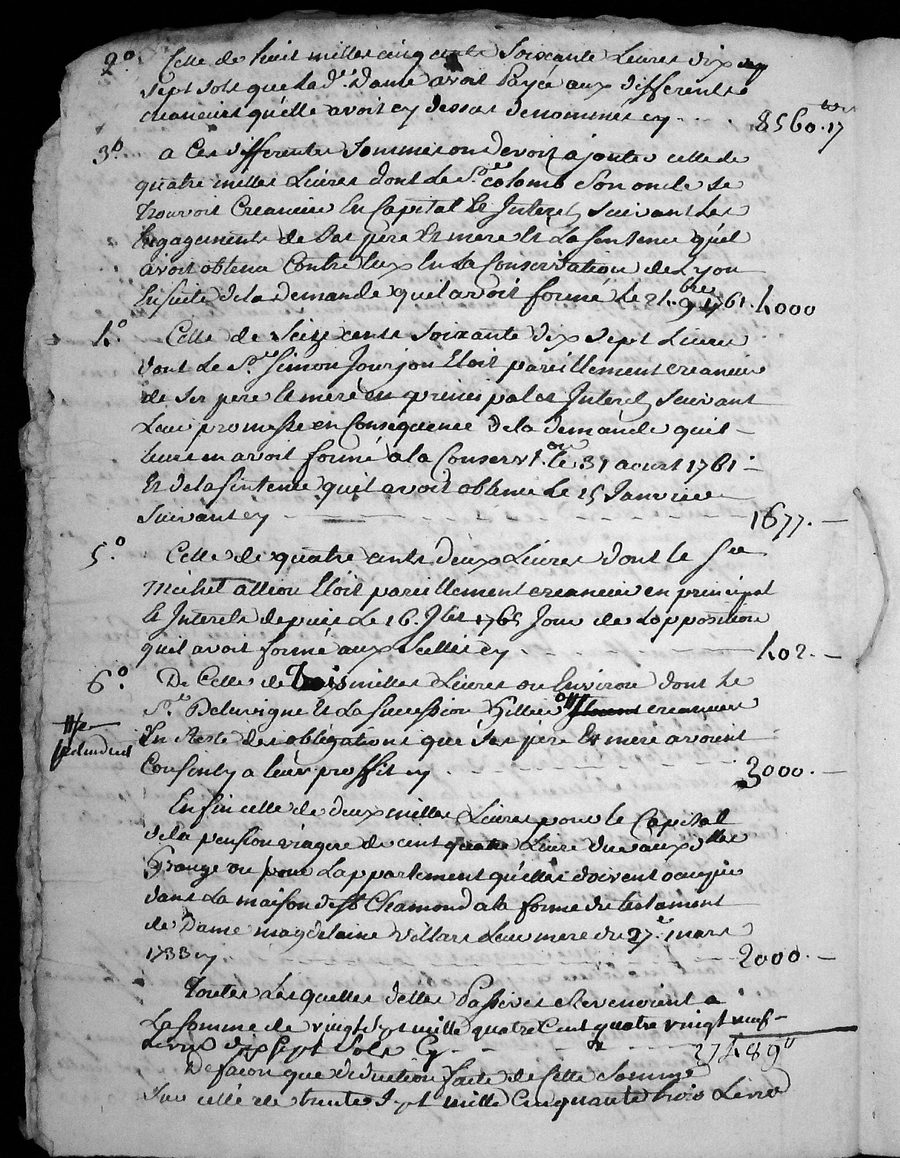 2° Celle de huit milles cinq cents Soixante Livres dix
sept sols que lad.e Dame avoit Payée aux differents
creanciers quelle avoit cy dessus denommés cy 8560.17
3° a Ces differentes Sommes on devoit ajouter celle de
quatre milles Livres dont le S.r Colomb Son oncle se
trouvoit Creancier En Capital Et Interets suivant les
Engagements de Ses père Et mere Et La Sentence quil
avoit obtenu Contre Eux En La Conservation de Lyon
Ensuite de la demande quil avoit formé le 21. 9bre 1761. 4000
4° Celle de Seize cents soixante dix sept Livres
dont le S.r Simon Jourjon Etoit pareillement creancier
de ses pere Et mere en principal et Interets suivant
Leur promesse en Consequence de la demande quil
leur en avoit formé a la Conservt.on le 31 aoust 1761
Et de la sentence quil avoit obtenu Le 15 Janvier
Suivant cy 1677.
5° Celle de quatre cents deux Livres dont le Sr
Michel allion Etoit pareillement creancier en principal
Et Interets depuis Le 16. Jour de Lopposition
quil avoit formé aux scellés cy 402.
6° De Celle de Trois milles Livres ou Environ dont le
S.r Delavigne Et La Succession creanciers
En Reste des obligations que ses père Et mere avoient
Consenty a leur proffit cy 3000.
Enfin celle de deux milles Livres pour le Capital
de la pension viagere de cent quatre Livre due aux dlles
Grange ou pour Lappartement quelles doivent occuper
dans La maison de st Chamond a la forme du testament
de Dame magdelaine Villars Leur mere du 27.e mars
1733 cy 2000.
Toutes Lesquelles dettes Passives Revenoient a
La somme de vingt sept mille quatre Cent quatre vingt neuf
Livres dix Sept Sols Cy 27489"
De façon que deduction faite de Cette Somme
Sur celle de trente Sept mille Cinquante trois Livres